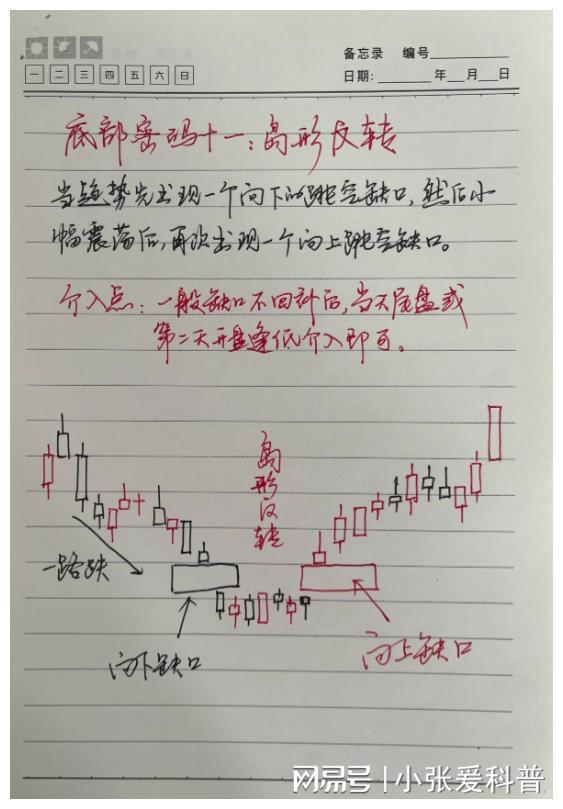 备忘录 编号
一 二 三 四 五 六 日
日期: 年 月 日
底部密码十一:岛形反转
当趋势先出现一个向下的跳空缺口,然后小
幅震荡后,再次出现一个向上跳空缺口。
介入点:一般缺口不回补后,当天尾盘或
第二天开盘逢低介入即可。
岛形反转
一路跌
向下缺口
向上缺口
网易号 | 小张爱科普